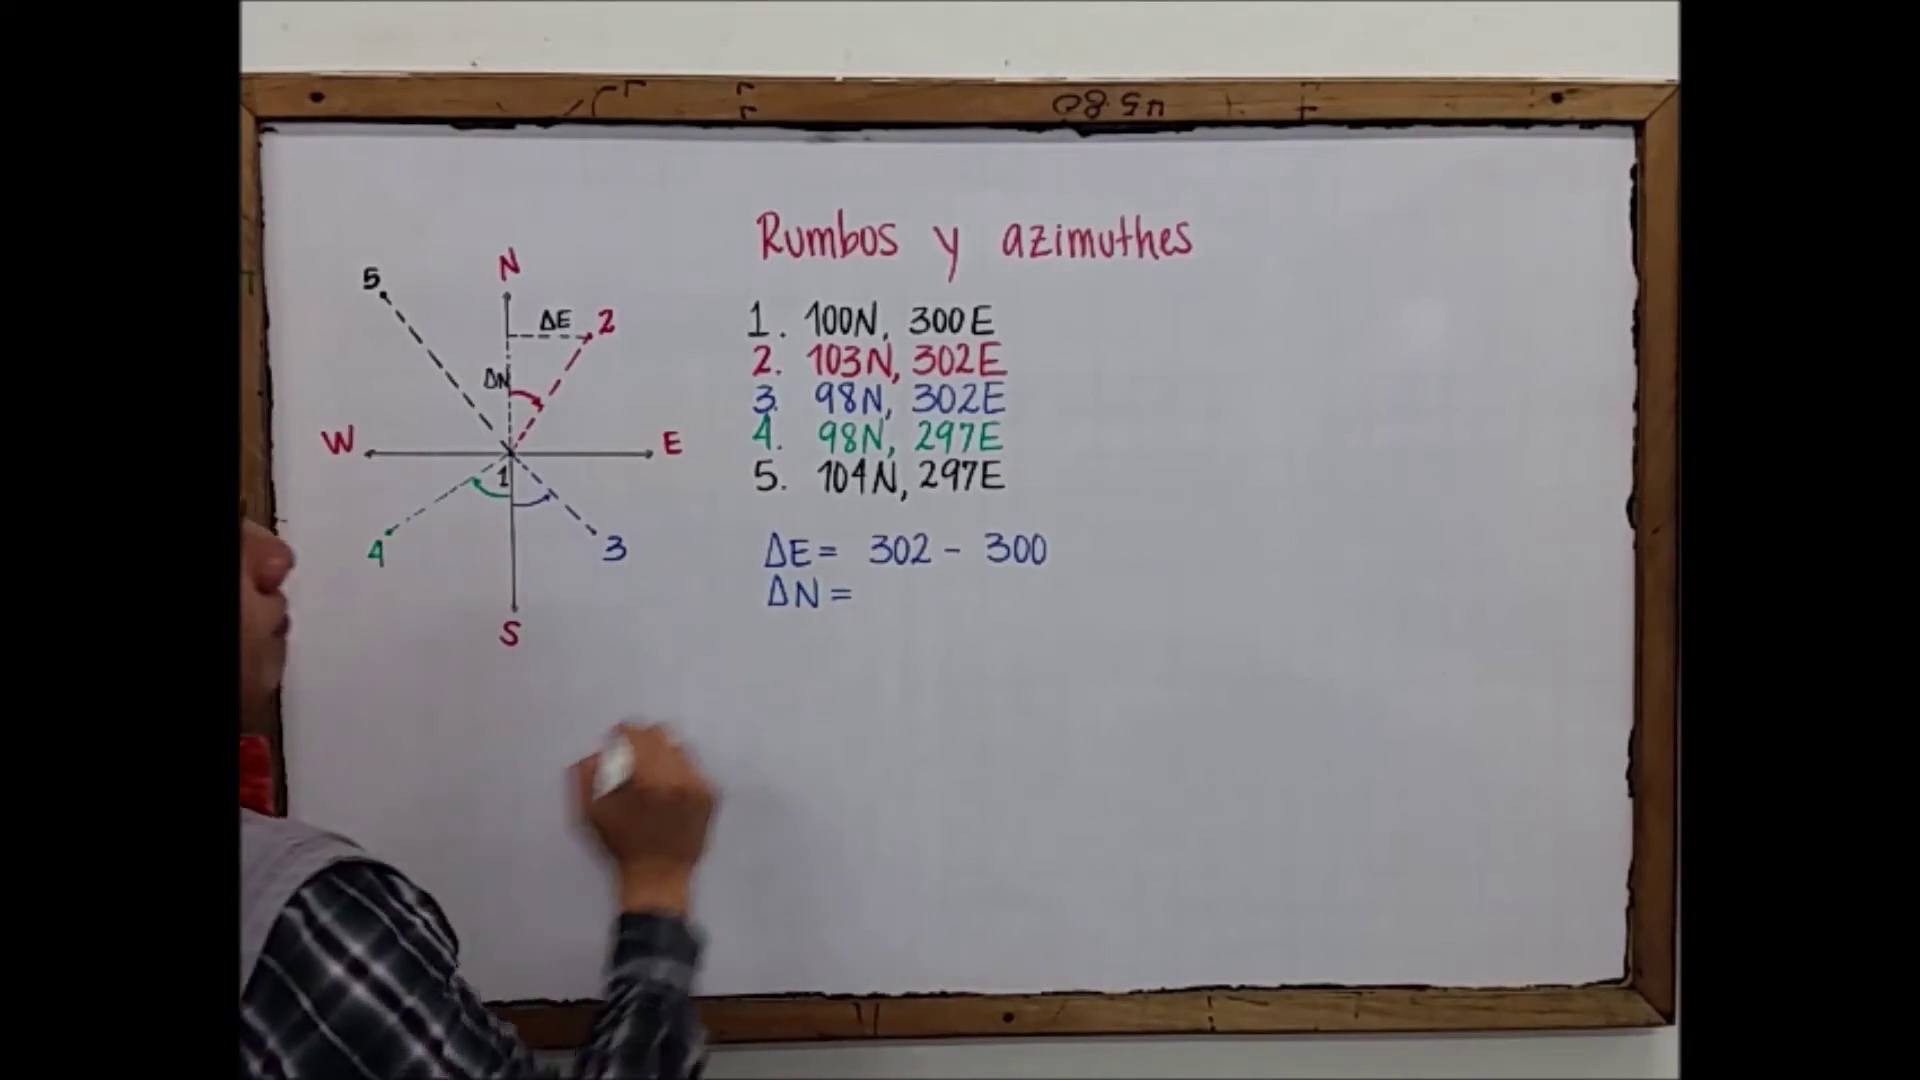 Rumbos y azimuthes
N
5
ΔE 2
ΔN
W E
1
4 3
S
1. 100N, 300E
2. 103N, 302E
3. 98N, 302E
4. 98N, 297E
5. 104N, 297E
ΔE = 302 - 300
ΔN =